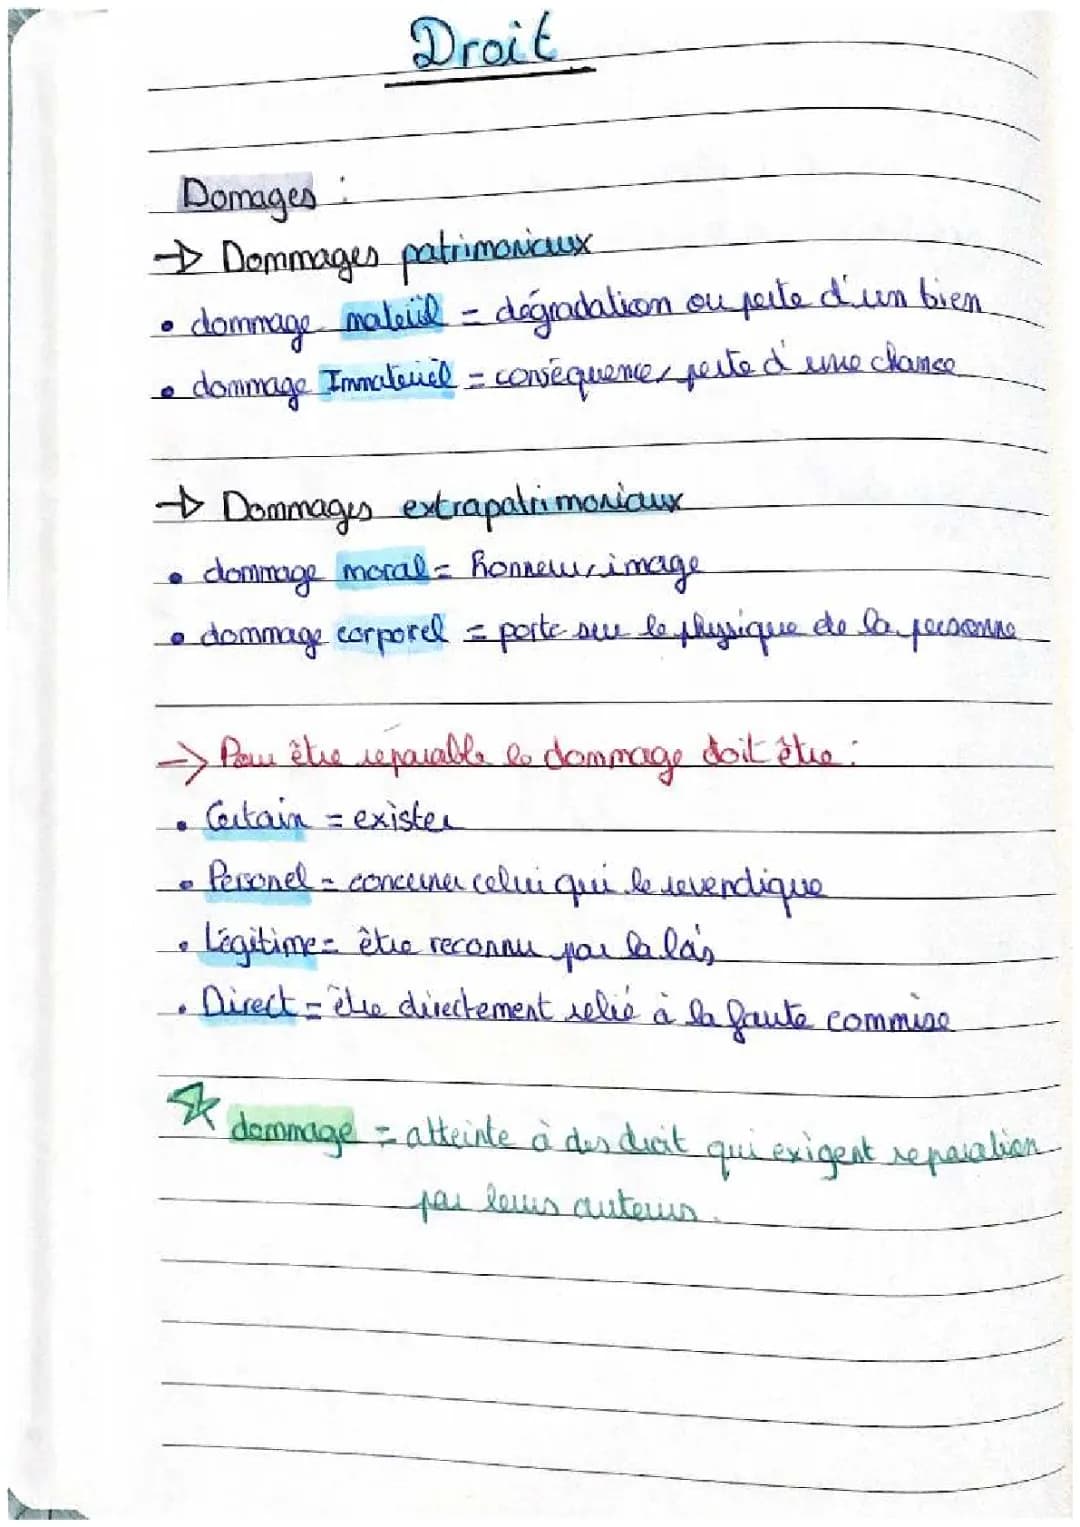 Droit
Domages :
→ Dommages patrimoniaux
• dommage matériel = dégradation ou perte d'un bien
• dommage Immatériel = conséquence, perte d'une chance
→ Dommages extrapatrimoniaux
• dommage moral = honneur, image
• dommage corporel = porte sur le physique de la personne
→ Pour être réparable le dommage doit être :
• Certain = exister
• Personel = concerner celui qui le revendique
• Légitime = être reconnu par la
• Direct = être directement relié à la faute commise
☆ dommage = atteinte à des droit qui exigent reparation
par leurs auteurs.